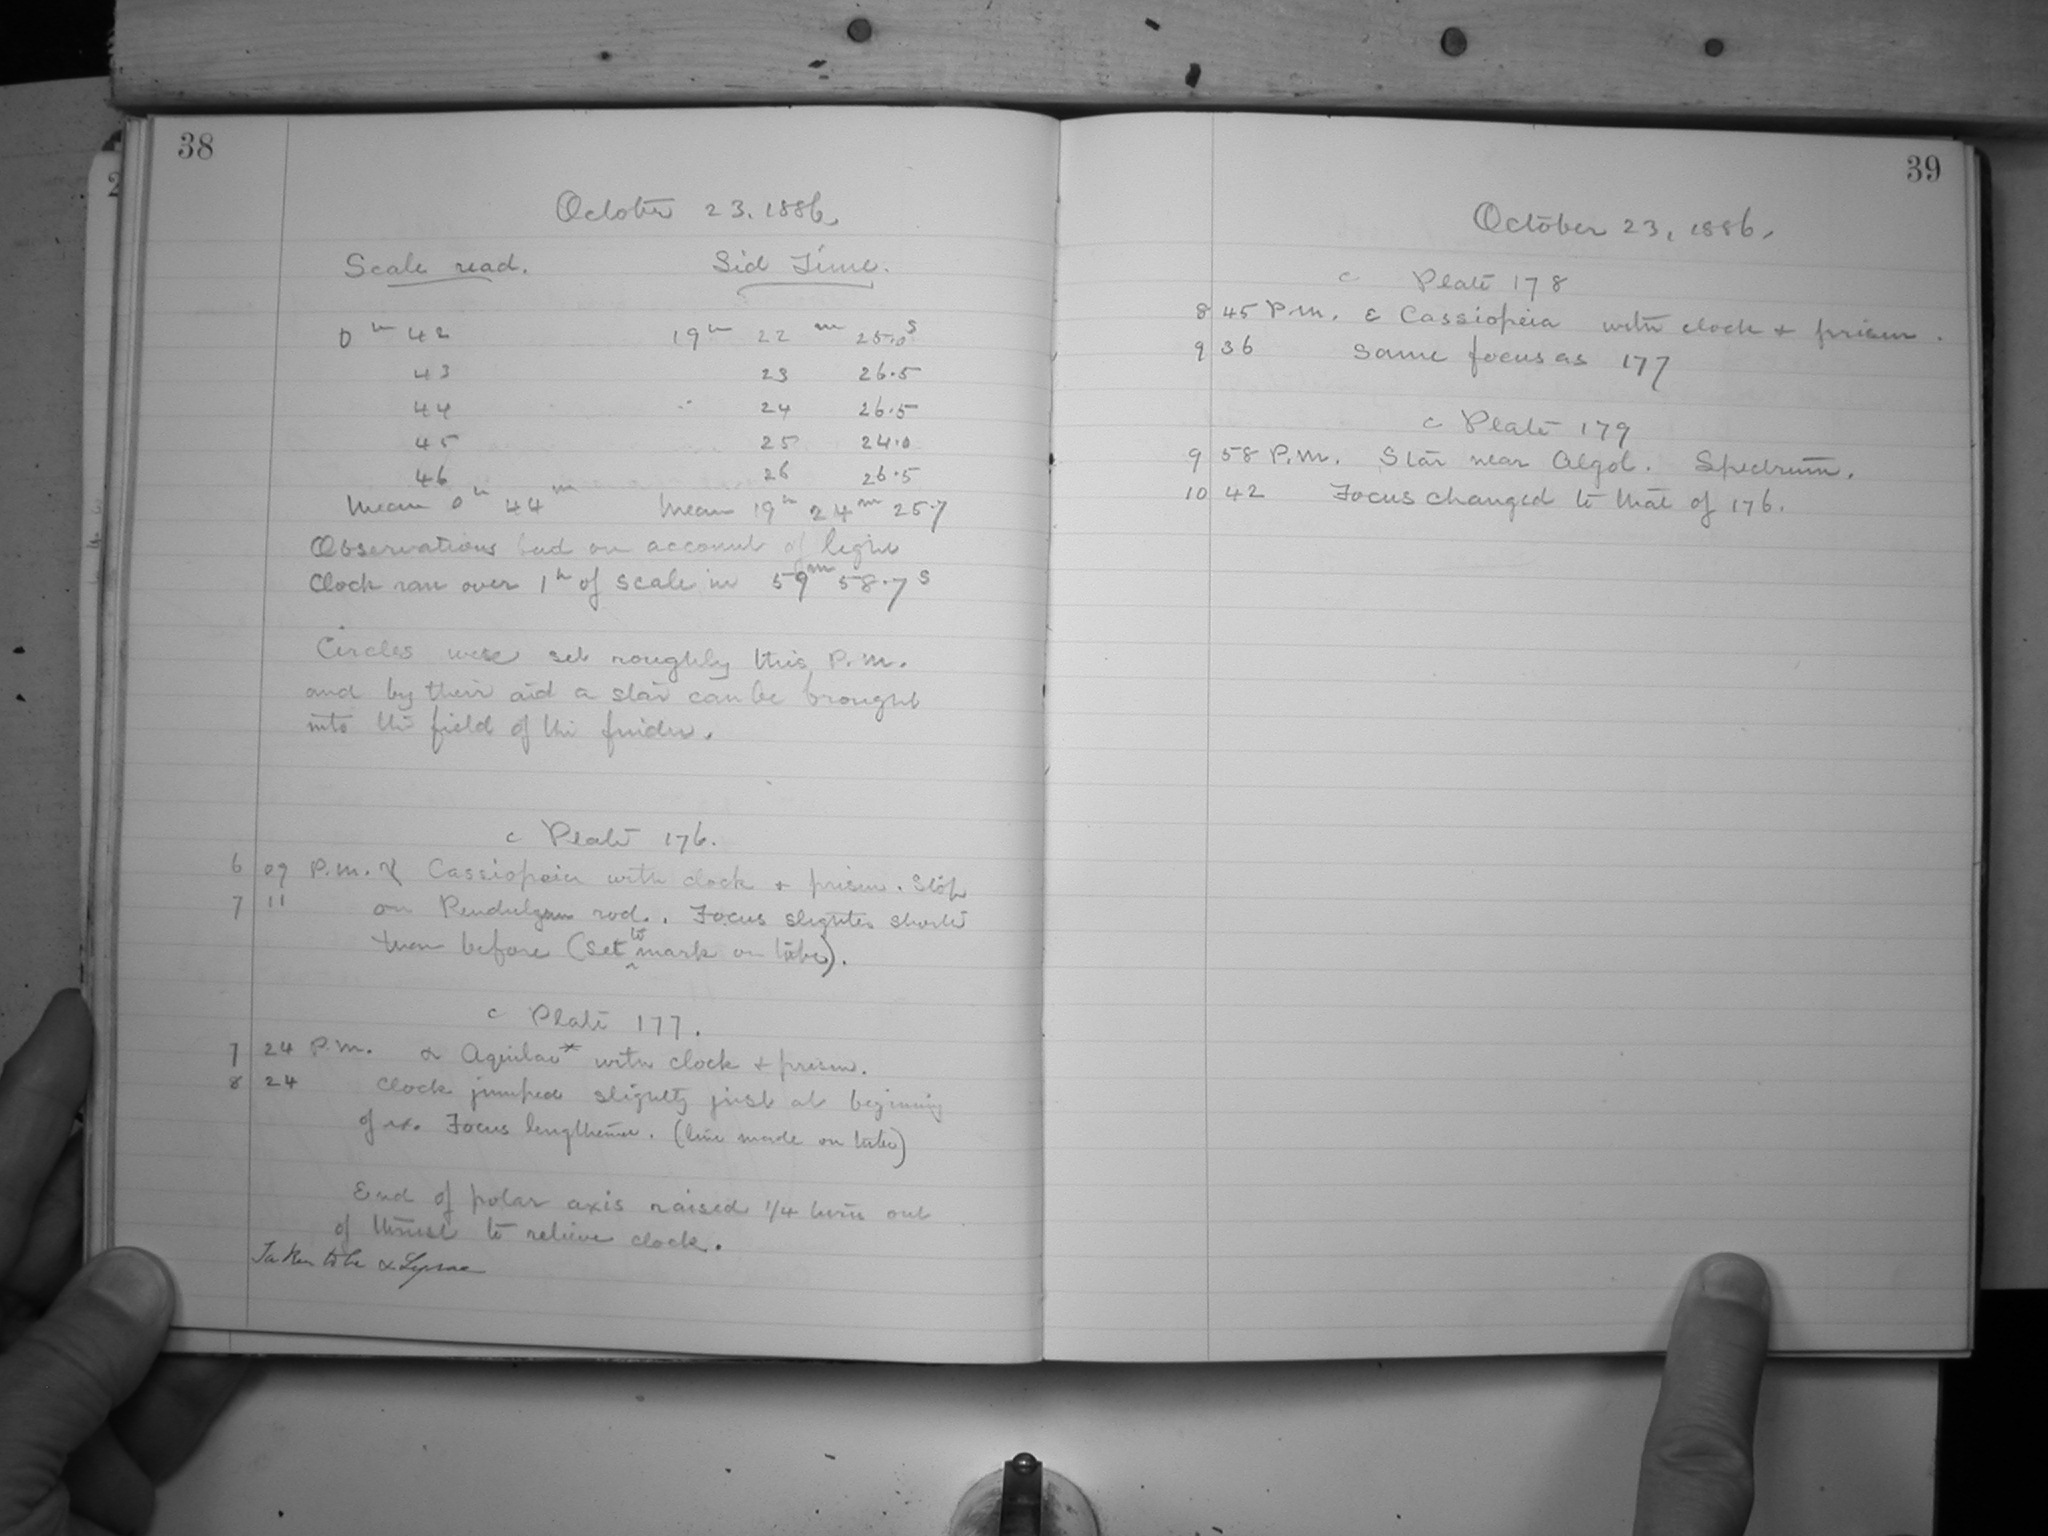 38
October 23. 1886.
Scale read. Sid Time.
0 h 42 19 h 22 m 25.0 s
43 23 26.5
44 24 26.5
45 25 24.0
46 26 26.5
Mean 0 h 44 m Mean 19 h 24 m 25.7
Observations bad on account of light
Clock ran over 1 h of scale in 59 m 58.7 s
Circles were set roughly this P.M.
and by their aid a star can be brought
into the field of the finder.
c Plate 176.
6 09 P.M. γ Cassiopeia with clock + prism. Stop
7 11 on Pendulum rod. Focus slightly shorter
than before (set to mark on tube).
c Plate 177.
7 24 P.M. α Aquilae* with clock + prism.
8 24 Clock jumped slightly just at beginning
of ex. Focus lengthened. (line made on tube)
End of polar axis raised 1/4 turn out
of thrust to relieve clock.
Taken to be α Lyrae
2
39
October 23, 1886.
c Plate 178
8 45 P.M. ε Cassiopeia with clock + prism.
9 36 Same focus as 177
c Plate 179
9 58 P.M. Star near Algol. Spectrum.
10 42 Focus changed to that of 176.